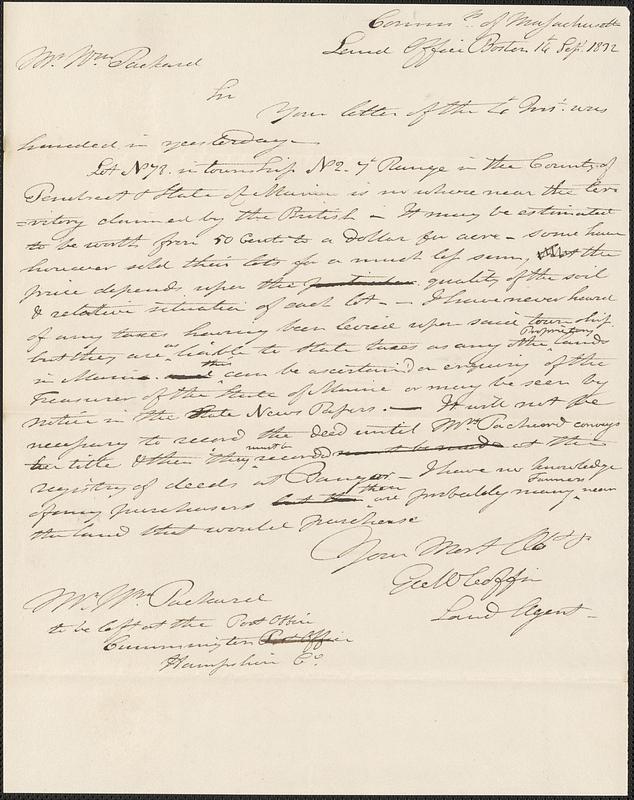 Commth of Massachusetts
Land Office Boston 14 Sepr. 1832
Mr. Wm Packard
Sir
Your letter of the Inst. was
handed in yesterday.
Lot No 72. in township No 2. 7th Range in the County of
Penobscot & State of Maine is no where near the ter=
=ritory claimed by the British — It may be estimated
to be worth from 50 Cents to a dollar per acre — some have
however sold their lots for a much less sum, the
price depends upon the quality of the soil
& relative situation of each lot — I have never heard
of any taxes having been levied upon said township
but they are as liable to State taxes as any the Proprietors lands
in Maine. this can be ascertained on enquiry of the
Treasurer of the State of Maine or may be seen by
notice in the State News Papers. — It will not be
necessary to record the deed until Mrs Packard conveys
her title & then they must be recorded at the
registry of deeds at Bangor — I have no knowledge
of any purchasers there are probably many Farmers near
the land that would purchase
Your Most Obt Sr
Geo W Coffin
Land Agent —
Mr. Wm. Packard
to be left at the Post Office
Cummington
Hampshire Co.